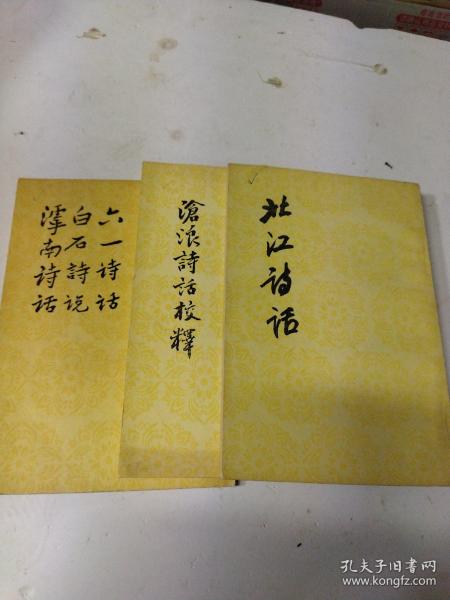 六一诗话
白石詩说
滹南诗话
滄浪詩話校釋
北江诗话
孔夫子旧书网
www.kongfz.com